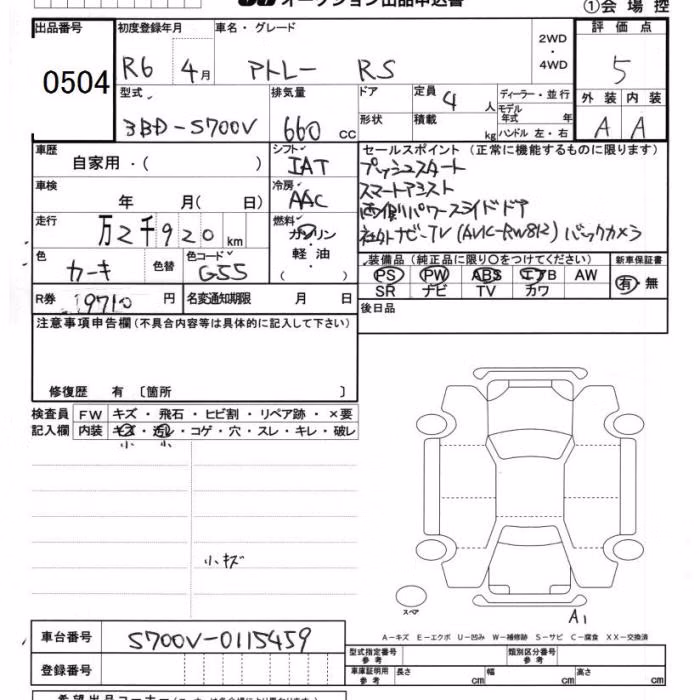 オークション出品申込書 ①会場控
出品番号 初度登録年月 車名・グレード 2WD・4WD 評価点
0504 R6 4月 アトレー RS 5
型式 排気量 ドア 定員 4人 ディーラー・並行 外装 内装
3BD-S700V 660cc 形状 積載 kg モデル年式 年 ハンドル 左・右 A A
車歴 自家用・( ) シフト IAT セールスポイント (正常に機能するものに限ります)
プッシュスタート
車検 年 月( 日) 冷房 AAC スマートアシスト
両側パワースライドドア
走行 万2千920km 燃料 ガソリン・軽油・( ) 社外ナビ-TV (AVIC-RW812) バックカメラ
色 カーキ 色替 色コード G55 装備品 (純正品に限り○をつけてください) 新車保証書
PS PW ABS エアB AW 有・無
SR ナビ TV カワ
R券 9710円 名変通知期限 月 日 後日品
注意事項申告欄(不具合内容等は具体的に記入して下さい)
修復歴 有 〔箇所 〕
検査員 FW キズ・飛石・ヒビ割・リペア跡・×要
記入欄 内装 キズ・汚レ・コゲ・穴・スレ・キレ・破レ
小 小
小キズ
スペア
A1
A-キズ E-エクボ U-凹み W-補修跡 S-サビ C-腐食 XX-交換済
車台番号 S700V-0115459
型式指定番号 参考 類別区分番号 参考
登録番号 車庫証明用 参考 長さ cm 幅 cm 高さ cm
希望出品コーナー